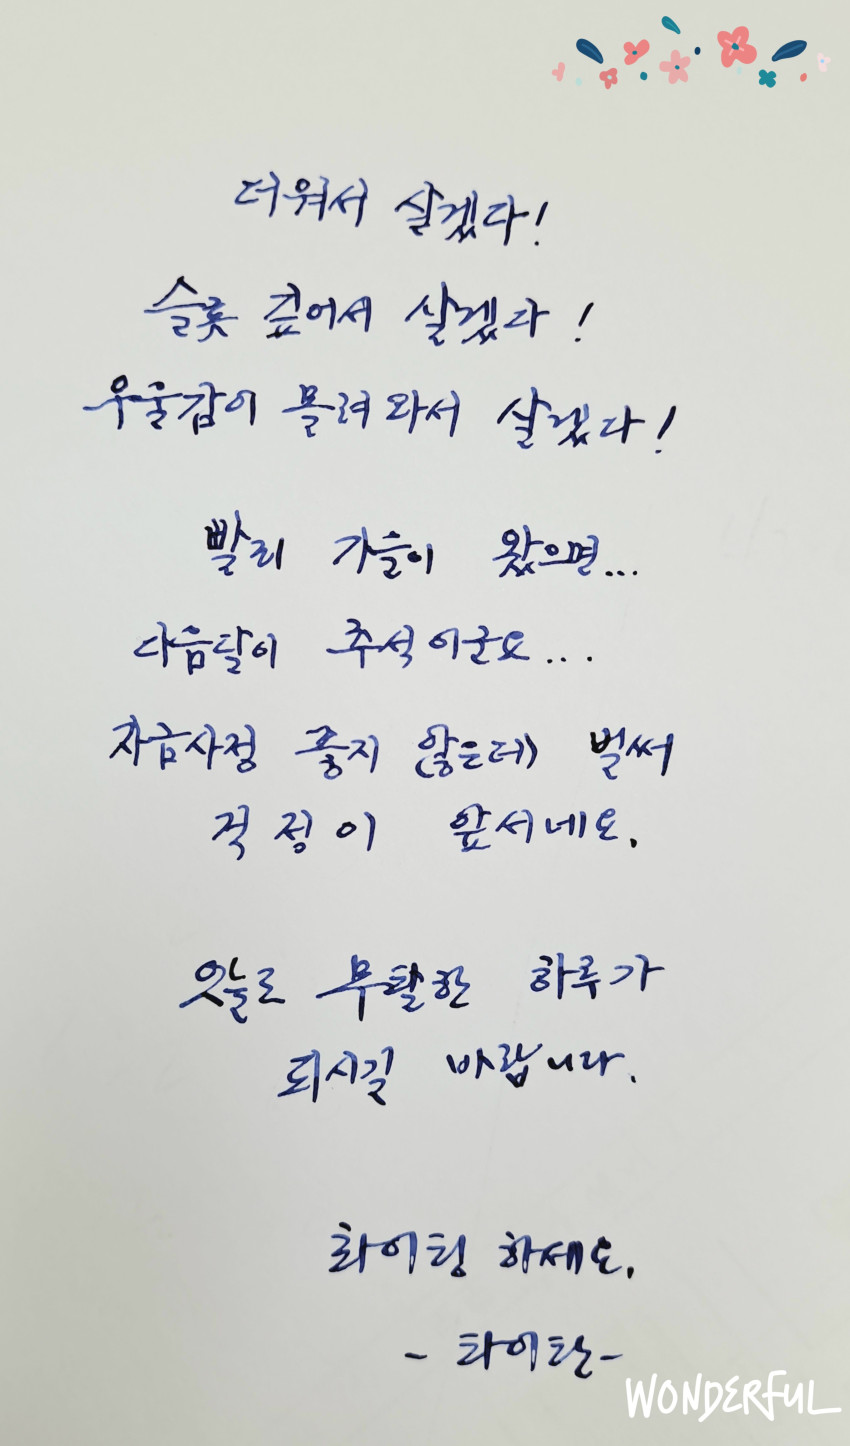 더워서 살겠다!
슬롯 깊어서 살겠다!
우울감이 몰려와서 살겠다!
빨리 가을이 왔으면...
다음달이 추석이군요...
자금사정 좋지 않은데 벌써
걱정이 앞서네요.
오늘도 무탈한 하루가
되시길 바랍니다.
화이팅 하세요.
- 타이탄 -
WONDERFUL